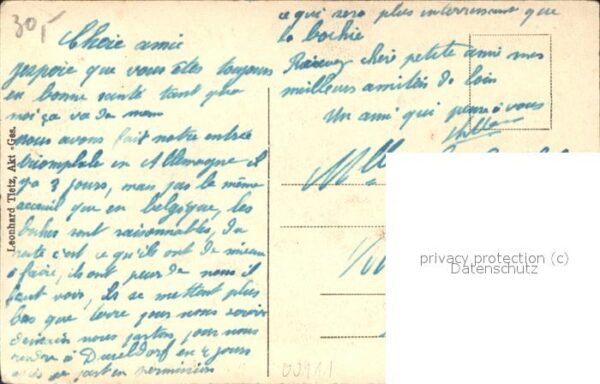 30,-
Chère amie
j'espoie que vous êtes toujours
en bonne santé tant qua
moi ça va de mem
nous avons fait notre entrée
triomphale en Allemagne il
y a 3 jours, mais pas le même
acceuil que en belgique, les
boches sont raisonnables, du
reste c'est ce qu'ils ont de mieux
a faire, ils ont peur de nous il
faut voir, ils se mettent plus
bas que terre pour nous servir
demain nous partons pour nous
rendre à Dusseldorf en 4 jours
après je part en permission
ce qui sera plus interressant que
la bochie
Recevez chère petite amie mes
meilleurs amitiés de loin
Un ami qui pense à vous
Mlle
Leonhard Tietz, Akt.-Ges.
privacy protection (c)
Datenschutz